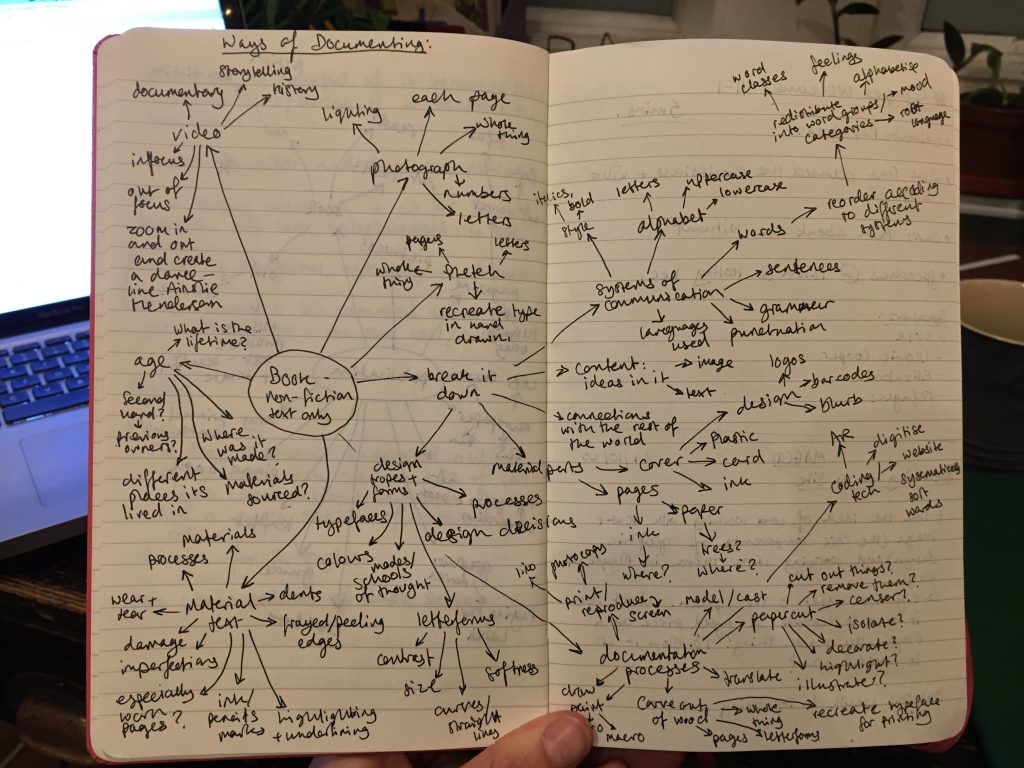 Ways of Documenting:
documentary
storytelling
History
video
infocus
out of
focus
zoom in
and out
and create
a dance –
line Ainslie
Henderson
lighting
each page
whole
thing
photograph
numbers
letters
pages
letters
whole
thing
sketch
recreate type
in hand
drawn.
What is the
lifetime?
age
Second
hand?
previous
owners?
different
places its
lived in
Where
was it
made?
Materials
sourced?
Book –
non-fiction
text only
break it
down
design
tropes +
forms
typefaces
colours
modes/
schools
of thought
processes
design decisions
material parts
letterforms
contrast
size
curves/
straight
lines
softness
materials
processes
wear +
tear
Material
text
dents
frayed/peeling
edges
damage
imperfections
especially
worn
pages?
ink/
pencils
marks
highlighting
+ underlining
word
classes
feelings
alphabetise
mood
root
language
redistribute
into word groups/
categories
reorder accoding
to different
systems
italics,
bold
style
letters
uppercase
lowercase
alphabet
words
systems of
communication
sentences
grammer
punctuation
languages
used
content:
ideas in it
image
text
connections
with the rest of
the world
logos
barcodes
blurb
design
cover
plastic
card
ink
pages
paper
ink
where?
trees?
where?
AR
digitise
website
systematically
sort
words
coding/
tech
photocopy
lino
print/
reproduce
screen
model/cast
papercut
cut out things?
remove them?
censor?
isolate?
decorate?
highlight?
illustrate?
documentation
processes
translate
draw
paint
macro
Carve out
of wood
whole
thing
pages
letterforms
recreate typeface
for printing